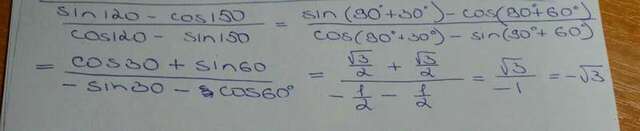 sin120 - cos150 / cos120 - sin150 = sin(90°+30°) - cos(90°+60°) / cos(90°+30°) - sin(90°+60°)
= cos30 + sin60 / -sin30 - cos60° = √3/2 + √3/2 / -1/2 - 1/2 = √3/-1 = -√3